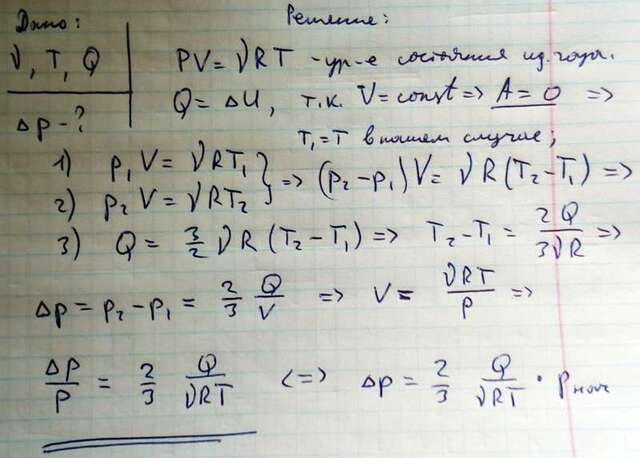 Дано:
ν, T, Q
Δp - ?
Решение:
PV = νRT - ур-е состояния ид. газа.
Q = ΔU, т.к. V = const => A = 0 =>
T₁ = T в нашем случае;
1) p₁V = νRT₁
2) p₂V = νRT₂ } => (p₂ - p₁)V = νR(T₂ - T₁) =>
3) Q = 3/2 νR(T₂ - T₁) => T₂ - T₁ = 2Q/3νR =>
Δp = p₂ - p₁ = 2/3 Q/V => V = νRT/P =>
ΔP/P = 2/3 Q/νRT <=> Δp = 2/3 Q/νRT · Pнач